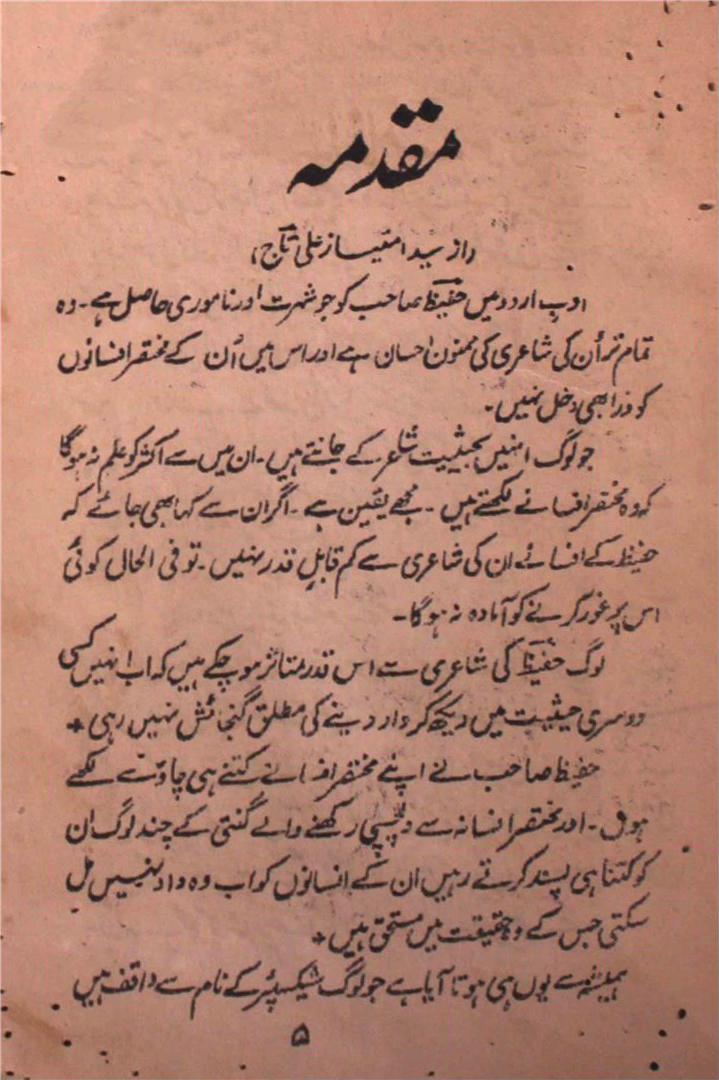 مقدمہ
(از سید امتیاز علی تاج)
ادب اردو میں حفیظ صاحب کو جو شہرت اور ناموری حاصل ہے۔ وہ
تمام تر اُن کی شاعری کی ممنون احسان ہے اور اس میں اُن کے مختصر افسانوں
کو ذرا بھی دخل نہیں۔
جو لوگ انہیں بحیثیت شاعر کے جانتے ہیں۔ ان میں سے اکثر کو علم نہ ہوگا
کہ وہ مختصر افسانے لکھتے ہیں۔ مجھے یقین ہے۔ اگر ان سے کہا بھی جائے کہ
حفیظ کے افسانے ان کی شاعری سے کم قابلِ قدر نہیں۔ تو فی الحال کوئی
اس پر غور کرنے کو آمادہ نہ ہوگا۔
لوگ حفیظ کی شاعری سے اس قدر متاثر ہو چکے ہیں کہ اب انہیں کسی
دوسری حیثیت میں دیکھ کر داد دینے کی مطلق گنجائش نہیں رہی *
حفیظ صاحب نے اپنے مختصر افسانے کتنے ہی چاؤ سے لکھے
ہوں۔ اور مختصر افسانہ سے دلچسپی رکھنے والے گنتی کے چند لوگ ان
کو کتنا ہی پسند کرتے رہیں ان کے افسانوں کو اب وہ داد نہیں مل
سکتی جس کے وہ حقیقت میں مستحق ہیں *
ہمیشہ سے یوں ہی ہوتا آیا ہے جو لوگ شیکسپئر کے نام سے واقف ہیں
۵